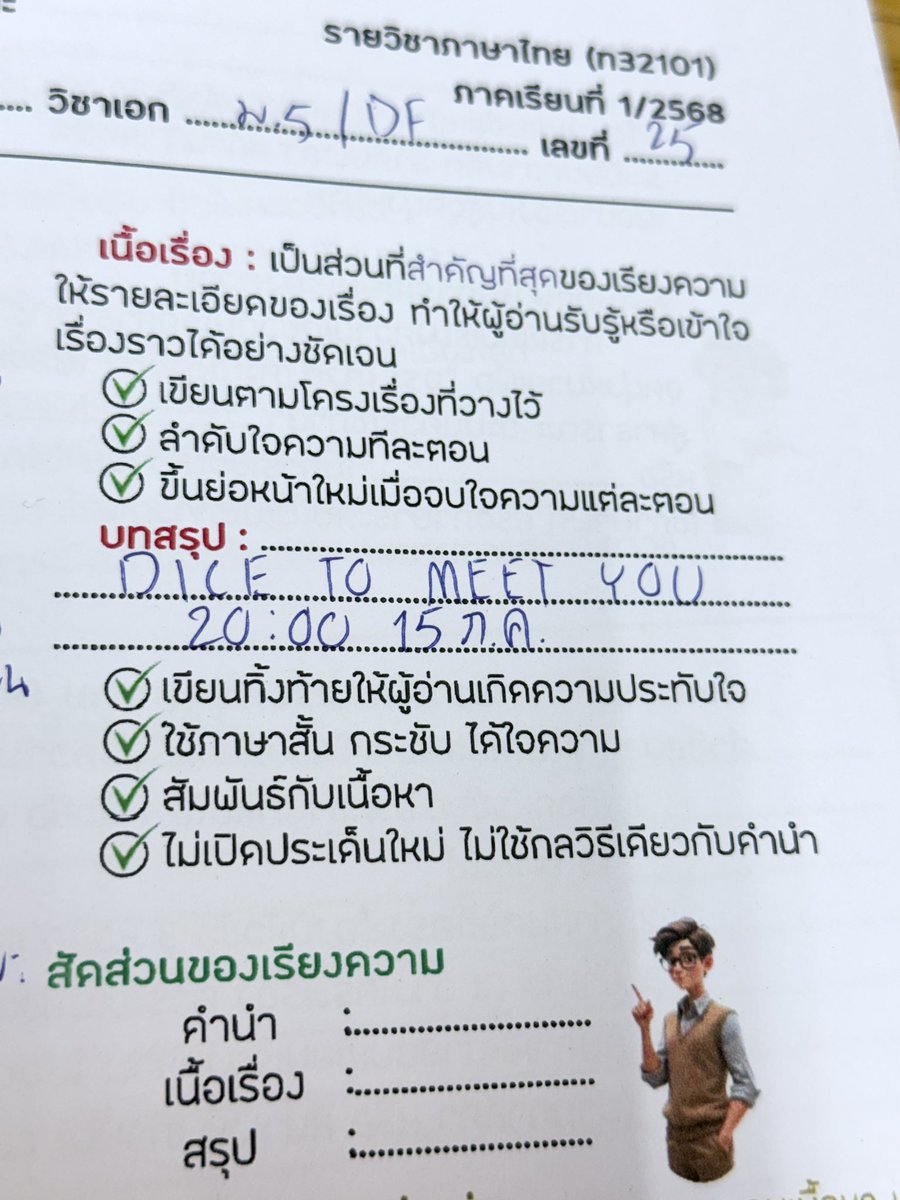 รายวิชาภาษาไทย (ท32101)
ภาคเรียนที่ 1/2568
.... วิชาเอก ........ ม.5 / DF ........ เลขที่ ... 25 ...
เนื้อเรื่อง : เป็นส่วนที่สำคัญที่สุดของเรียงความ
ให้รายละเอียดของเรื่อง ทำให้ผู้อ่านรับรู้หรือเข้าใจ
เรื่องราวได้อย่างชัดเจน
เขียนตามโครงเรื่องที่วางไว้
ลำดับใจความทีละตอน
ขึ้นย่อหน้าใหม่เมื่อจบใจความแต่ละตอน
บทสรุป : ........
DICE TO MEET YOU
20:00 15 ก.ค.
เขียนทิ้งท้ายให้ผู้อ่านเกิดความประทับใจ
ใช้ภาษาสั้น กระชับ ได้ใจความ
สัมพันธ์กับเนื้อหา
ไม่เปิดประเด็นใหม่ ไม่ใช้กลวิธีเดียวกับคำนำ
สัดส่วนของเรียงความ
คำนำ :........
เนื้อเรื่อง :........
สรุป :........